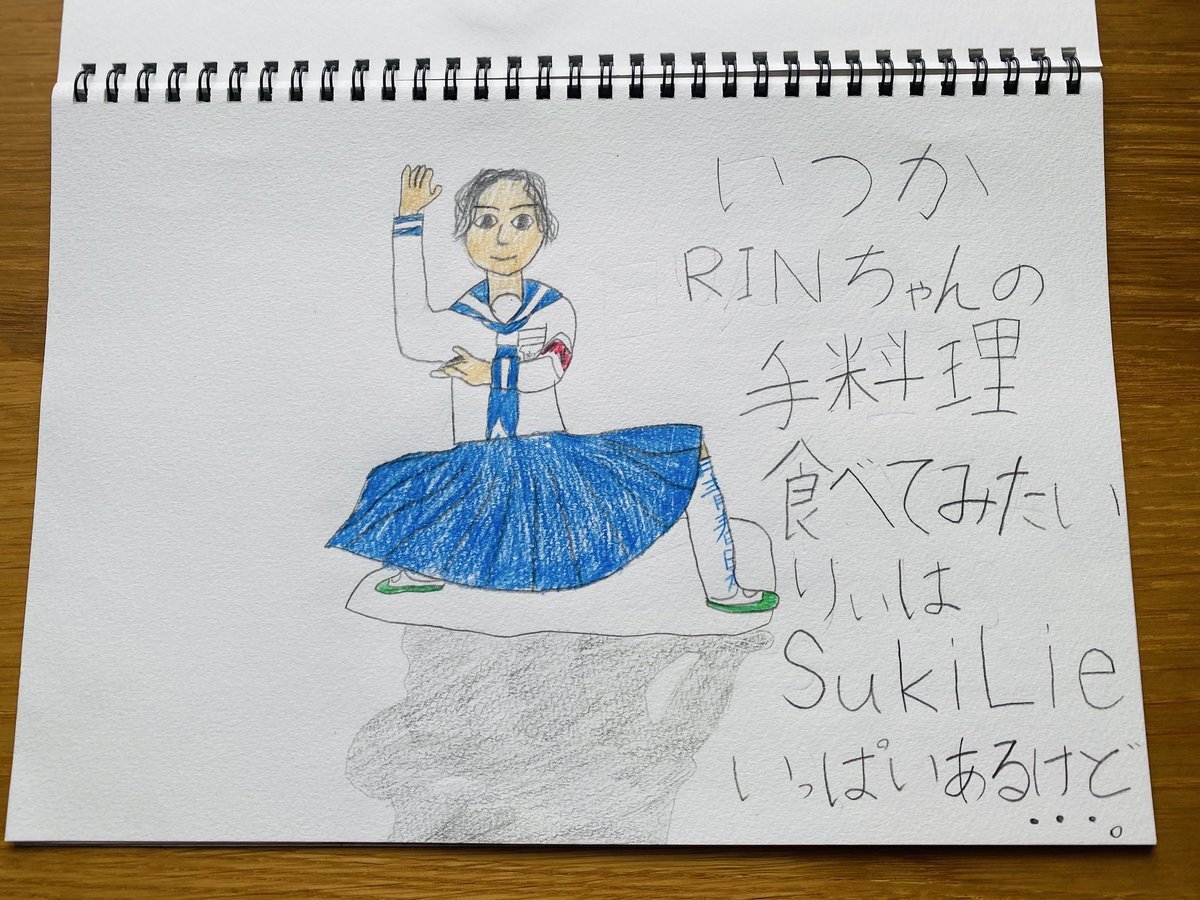 いつか
RINちゃんの
手料理
食べてみたい
りぃは
SukiLie
いっぱいあるけど
…。